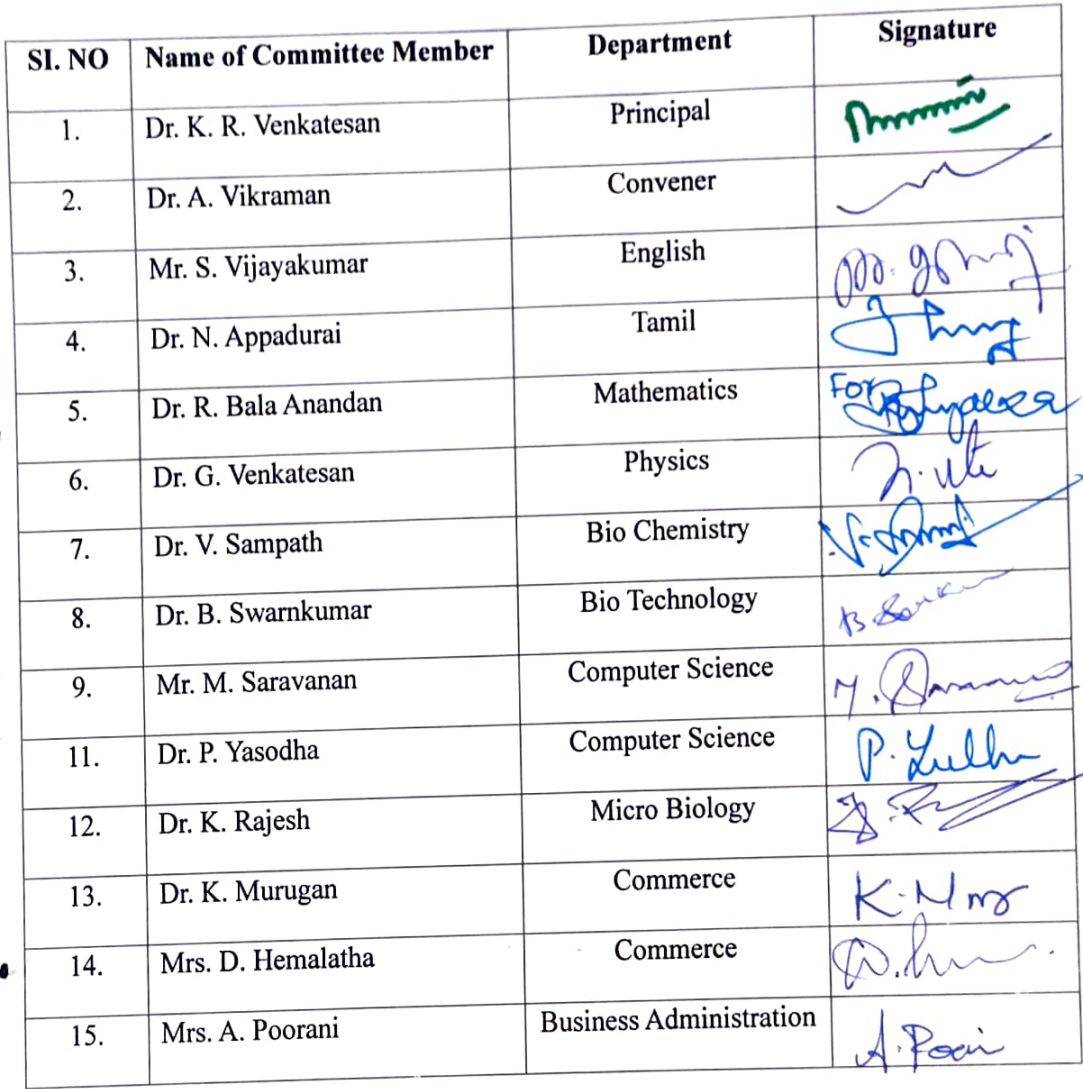 SI. NO Name of Committee Member Department Signature
1. Dr. K. R. Venkatesan Principal
2. Dr. A. Vikraman Convener
3. Mr. S. Vijayakumar English
4. Dr. N. Appadurai Tamil
5. Dr. R. Bala Anandan Mathematics For
6. Dr. G. Venkatesan Physics
7. Dr. V. Sampath Bio Chemistry
8. Dr. B. Swarnkumar Bio Technology
9. Mr. M. Saravanan Computer Science
11. Dr. P. Yasodha Computer Science
12. Dr. K. Rajesh Micro Biology
13. Dr. K. Murugan Commerce
14. Mrs. D. Hemalatha Commerce
15. Mrs. A. Poorani Business Administration